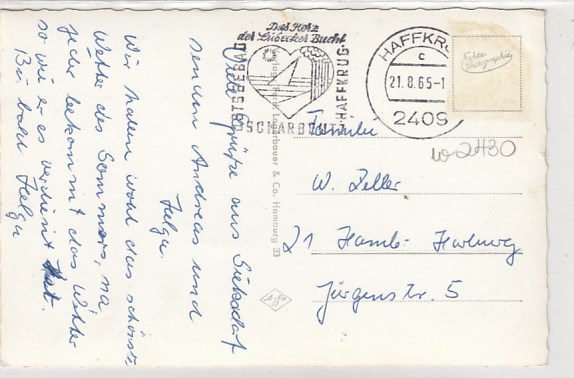 Viele Grüße aus Sierksdorf
senden Andreas und
Helga.
Wir haben wohl das schönste
Wetter des Sommers, na
jeder bekommt das Wetter
so wie er es verdient hat.
Bis bald Helga
Das Herz
der Lübecker Bucht
OSTSEEBAD
SCHARBEUTZ
HAFFKRUG
HAFFKRUG
c
21.8.65-1
2409
Echte Photographie
& Co, Hamburg 33
Agfa
W-2430
Familie
W. Zeller
21 Hamb- Harburg
Jürgenstr. 5